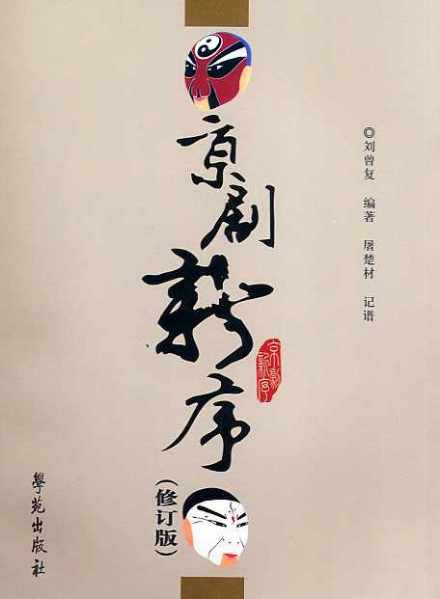 ◎刘曾复 编著 屠楚材 记谱
京剧新序
(修订版)
學苑出版社
京剧新序